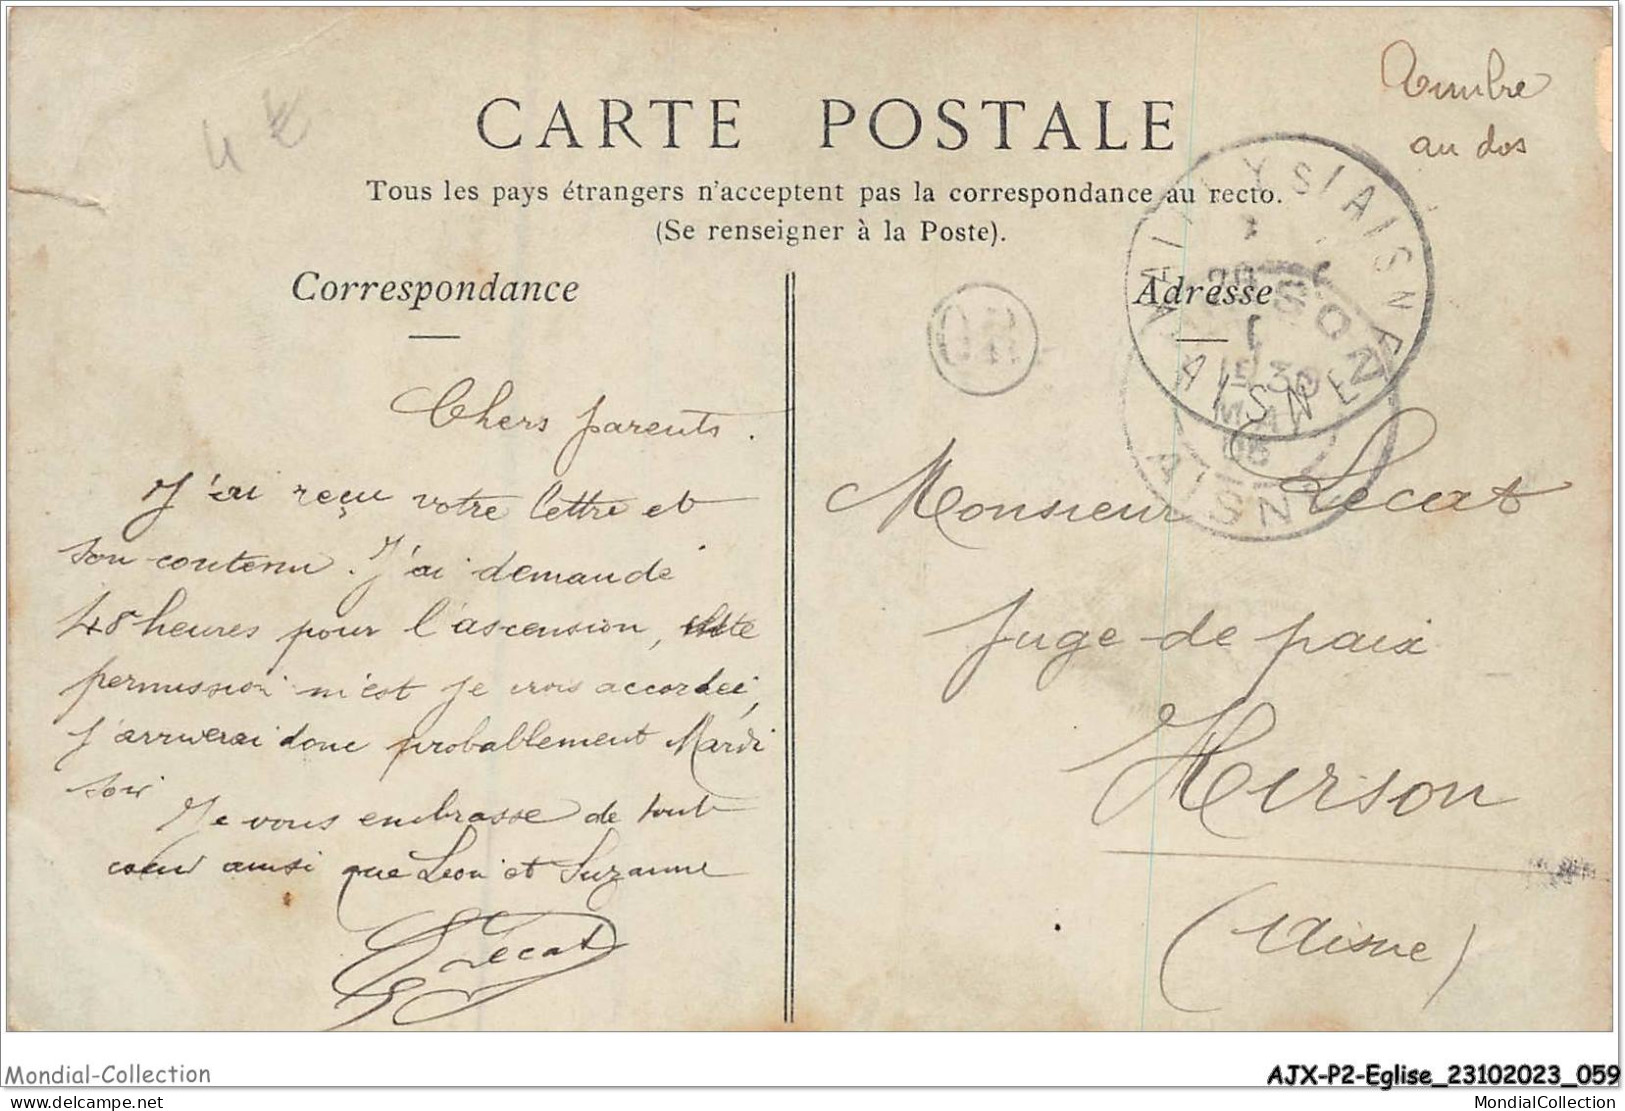 4 €
Timbre
au dos
CARTE POSTALE
Tous les pays étrangers n'acceptent pas la correspondance au recto.
(Se renseigner à la Poste).
Correspondance
Chers parents.
J'ai reçu votre lettre et
son contenu. J'ai demandé
48 heures pour l'ascension,
permission m'est je crois accordée,
j'arriverai donc probablement Mardi
soir
Je vous embrasse de tout
cœur ainsi que Léon et Suzanne
Lecat
Adresse
OR
AISNE
30
MAI
06
SON
AISNE
Monsieur Lecat
Juge de paix
Hirson
(Aisne)
Mondial-Collection
AJX-P2-Eglise_23102023_059
delcampe.net
MondialCollection